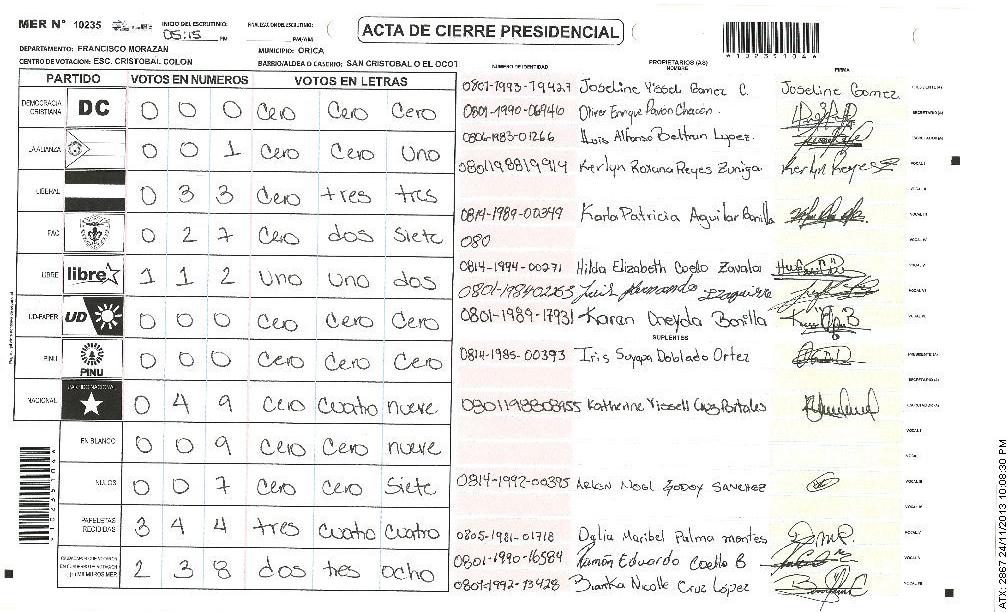 MER Nº 10235 INICIO DEL ESCRUTINIO: 05:15 PM FINALIZACION DEL ESCRUTINIO: PM/AM
ACTA DE CIERRE PRESIDENCIAL
*10235104*
DEPARTAMENTO: FRANCISCO MORAZAN MUNICIPIO: ORICA
CENTRO DE VOTACION: ESC. CRISTOBAL COLON BARRIO/ALDEA O CASERIO: SAN CRISTOBAL O EL OCOT
PARTIDO VOTOS EN NUMEROS VOTOS EN LETRAS
DEMOCRACIA CRISTIANA DC 0 0 0 Cero Cero Cero
LA ALIANZA 0 0 1 Cero Cero Uno
LIBERAL 0 3 3 Cero tres tres
PAC 0 2 7 Cero dos Siete
LIBRE libre 1 1 2 Uno Uno dos
UD-FAPER UD 0 0 0 Cero Cero Cero
PINU PINU 0 0 0 Cero Cero Cero
NACIONAL PARTIDO NACIONAL 0 4 9 Cero Cuatro nueve
EN BLANCO 0 0 9 Cero Cero nueve
NULOS 0 0 7 Cero Cero Siete
PAPELETAS RECIBIDAS 3 4 4 tres Cuatro Cuatro
2 3 8 dos tres ocho
NUMERO DE IDENTIDAD PROPIETARIOS (AS) NOMBRE FIRMA
0801-1993-79427 Joseline Yissel Gomez C. Joseline Gomez PRESIDENTE (A)
0801-1990-06946 Oliver Enrique Pavon Chacon. SECRETARIO (A)
0806-1983-01266 Luis Alfonso Beltran Lopez. ESCRUTADOR (A)
0801198819914 Kerlyn Roxana Reyes Zuniga. Kerlyn Reyes VOCAL I
0814-1989-00349 Karla Patricia Aguilar Bonilla
080
0814-1994-00271 Hilda Elizabeth Coello Zavala
0801-198402263 Luis Hernando Izaguirre
0801-1989-17931 Karen Oneyda Bonilla
SUPLENTES
0814-1985-00393 Iris Suyapa Doblado Ortez PRESIDENTE (A)
SECRETARIO (A)
0801198808955 Katherine Yissell Cruz Portales ESCRUTADOR (A)
0814-1992-00395 Arlon Noel Godoy Sanchez
0805-1981-01718 Oglia Maribel Palma montes
0801-1990-16584 Ramón Eduardo Coello B
0801-1992-13428 Bianka Nicolle Cruz López
*10235104*
ATX: 2867 24/11/2013 10:08:30 PM